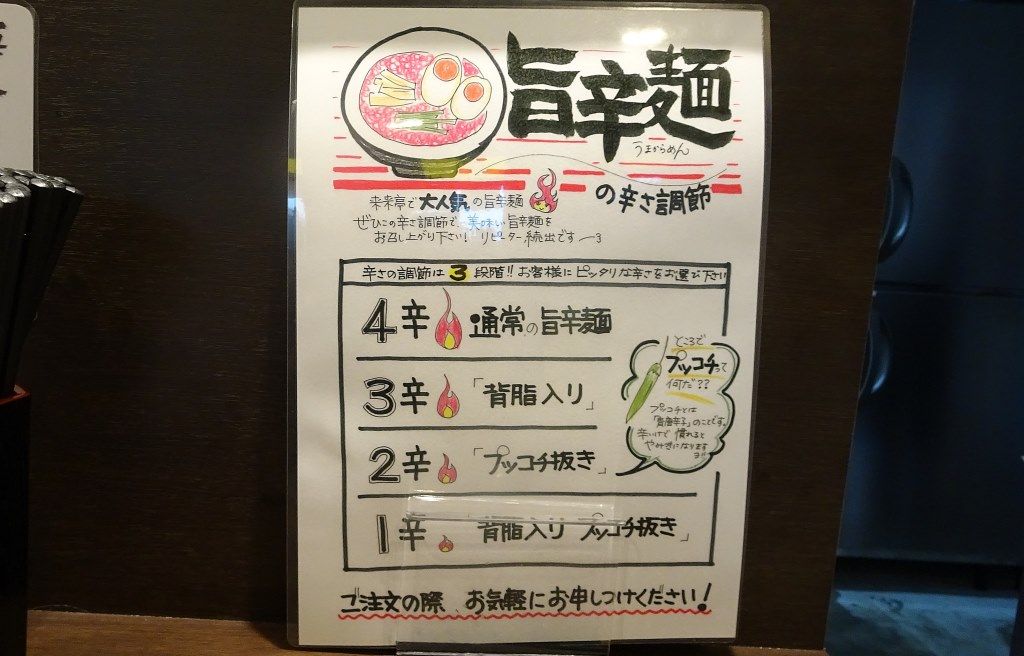 旨辛麺
うまからめん
の辛さ調節
来来亭で大人気の旨辛麺
ぜひこの辛さ調節で、美味い旨辛麺を
お召し上がり下さい！リピーター続出です
辛さの調節は3段階!!お客様にピッタリな辛さをお選び下さい
4辛 通常の旨辛麺
3辛 「背脂入り」
2辛 「プッコチ抜き」
1辛 「背脂入り プッコチ抜き」
ところで
プッコチって
何だ??
プッコチとは
「青唐辛子」のことです。
辛いけど慣れると
やみつきになります
ご注文の際、お気軽にお申しつけください！